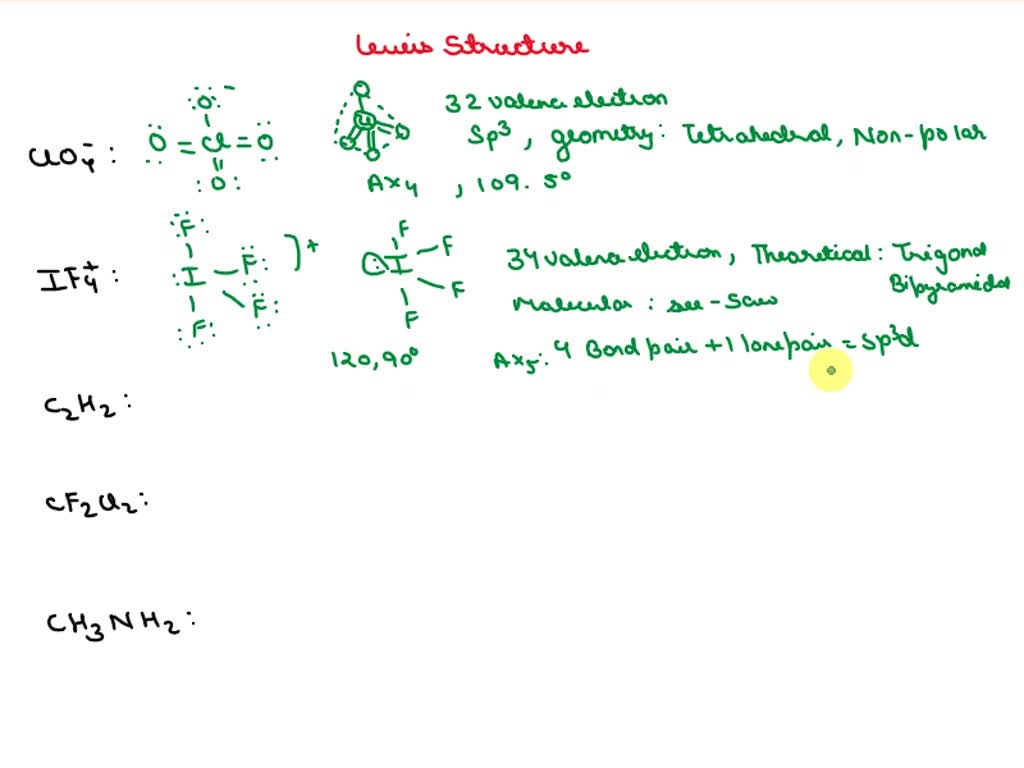 Lewis Structure
ClO₄⁻ :
O = Cl = O
O⁻
O
Cl
32 valence electron
Sp³, geometry: Tetrahedral, Non-polar
AX₄, 109.5°
IF₄⁺ :
F
I F ]⁺
F
F
F
I F
F
F
34 valence electron, Theoretical: Trigonal Bipyramidal
Molecular : see-Saw
120, 90°
AX₅: 4 Bond pair + 1 lone pair = Sp³d
C₂H₂ :
CF₂Cl₂ :
CH₃NH₂ :